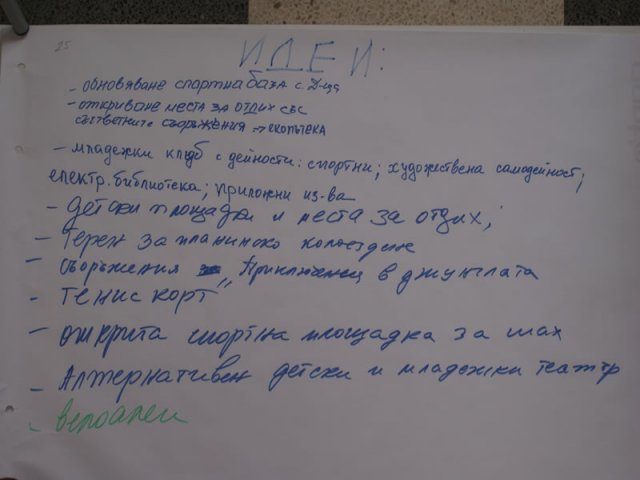 25
ИДЕИ:
- обновяване спортна база с. Д-ца
- откриване места за отдих със
съответните съоръжения → екопътека
- младежки клуб с дейности: спортни; художествена самодейност;
електр. библиотека; приложни из-ва
- Детски площадки и места за отдих;
- Терен за планинско колоездене
- съоръжения за „Приключенец в джунглата"
- Тенис корт
- открита спортна площадка за шах
- Алтернативен детски и младежки театър
- велоалеи